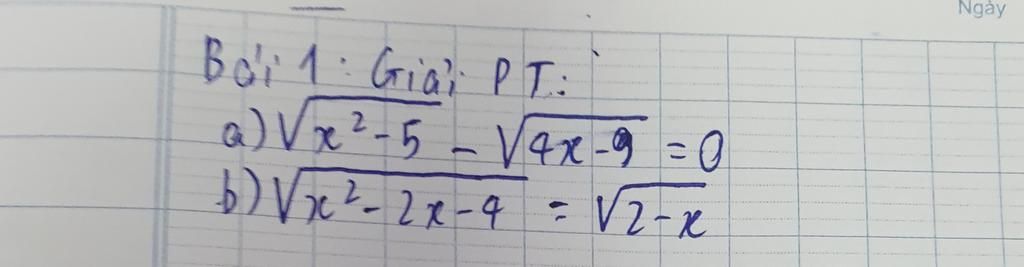 Ngày
Bài 1: Giải PT:
a) √(x²-5) - √(4x-9) = 0
b) √(x²-2x-4) = √(2-x)